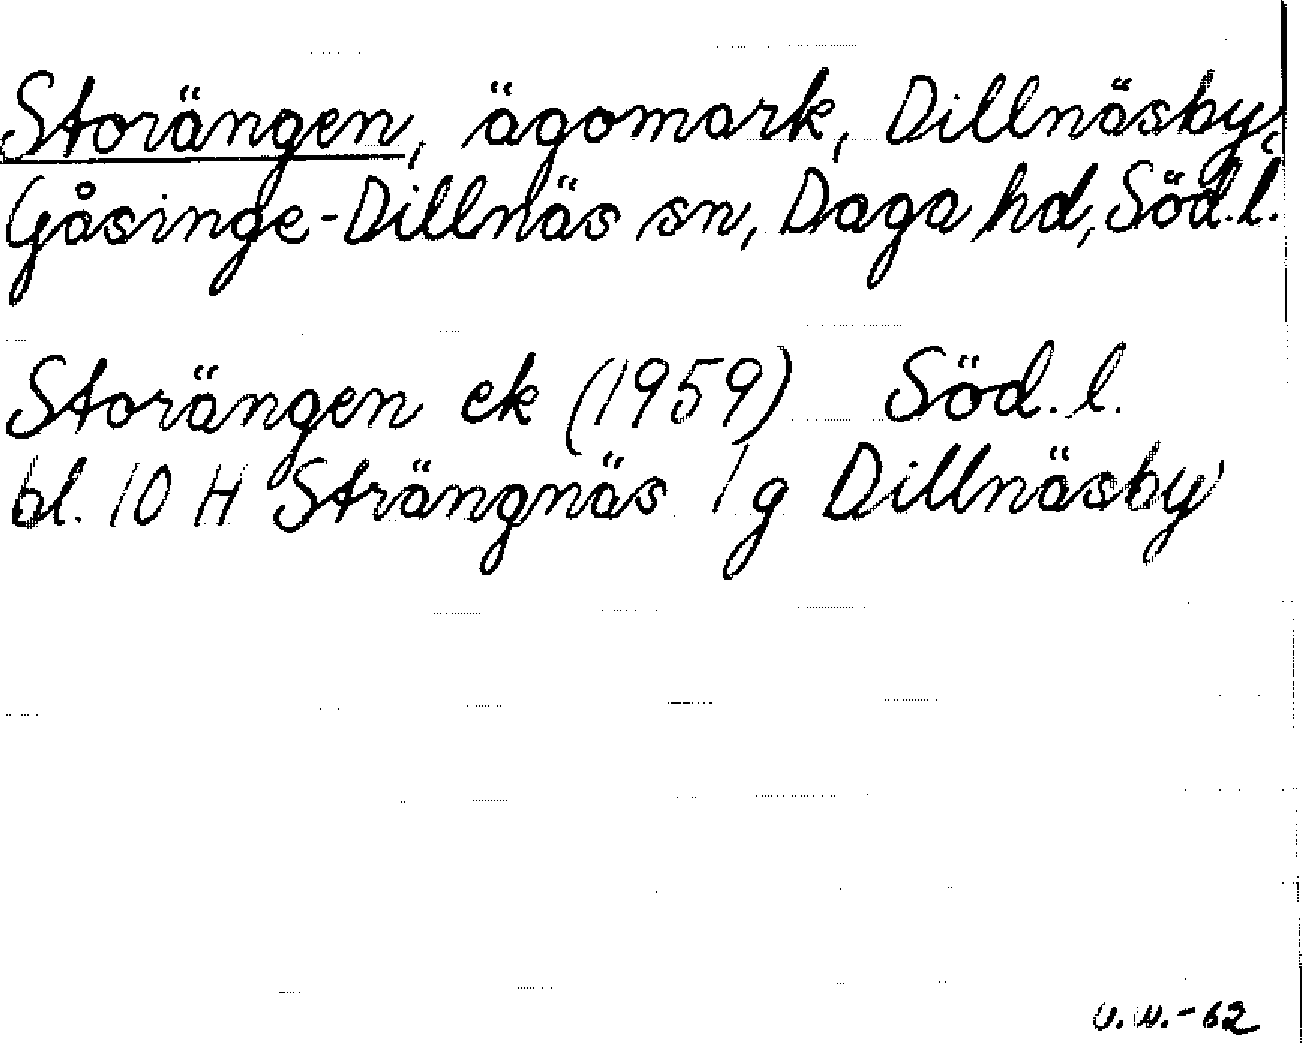 Storängen, ägomark, Dillnäsby,
Gåsinge-Dillnäs sn, Daga hd, Söd.l.
Storängen ek (1959) Söd.l.
bl. 10 H Strängnäs 1g Dillnäsby
U.W.-62